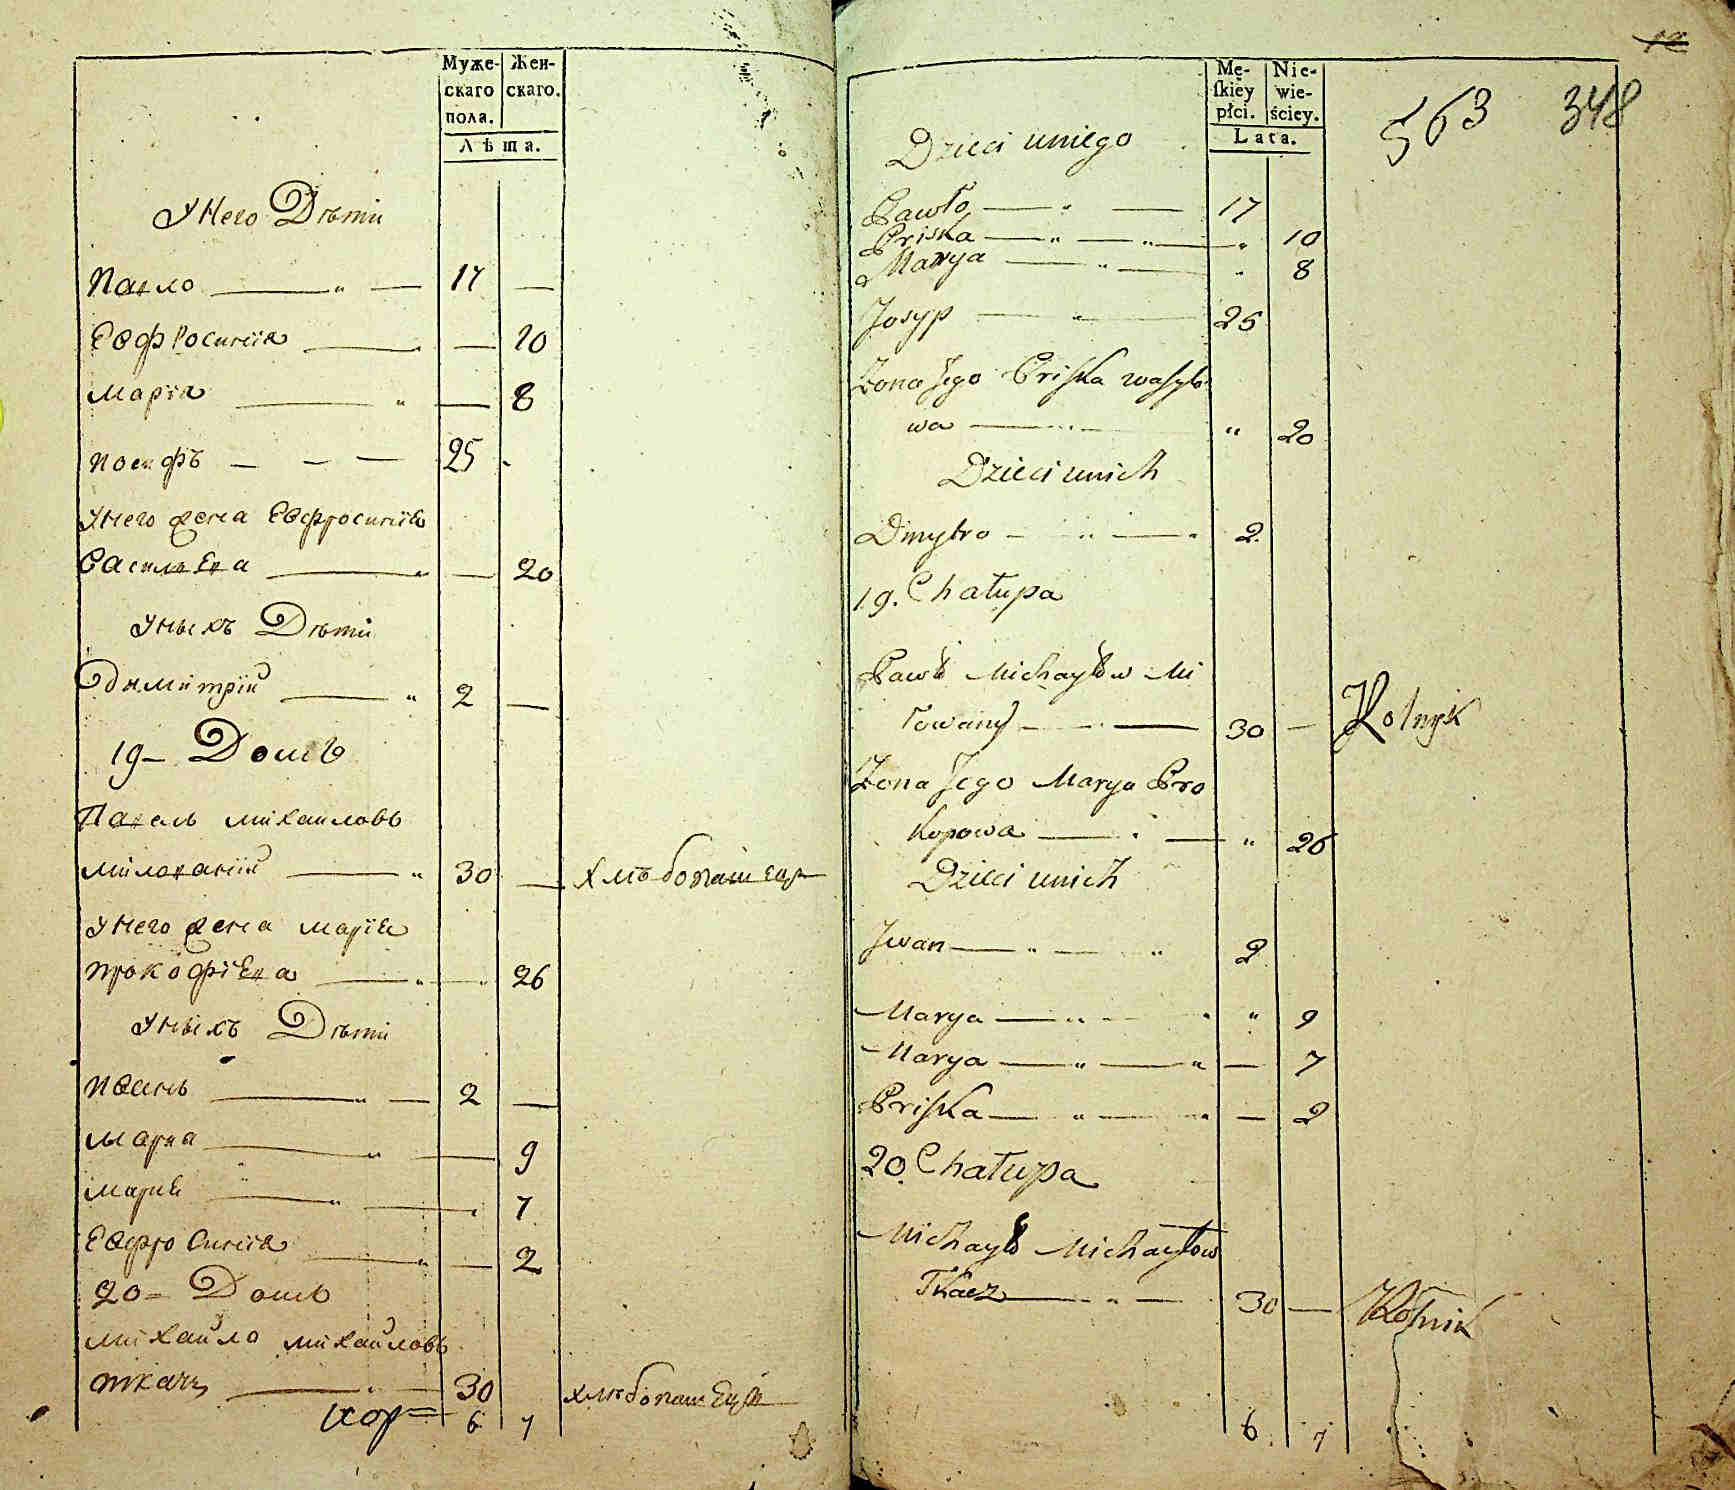 Муже- Жен-
скаго скаго.
пола.
Лѣта.
У Него Дѣти
Павло 17
Евфросинія 10
Марія 8
Иосифъ 25
У него жена Евфросинія
Василева 20
У ныхъ Дѣти
Димитрій 2
19 Домъ
Павелъ михаиловъ
милованій 30 хлѣбопашецъ
У него жена марія
прокофіева 26
У ныхъ Дѣти
Иванъ 2
Мариа 9
Мария 7
Евфросинія 2
20 Домъ
михайло михайловъ
ткачъ 30 хлѣбопашецъ
6 7
12
563 348
Mę- Nie-
skiey wie-
płci. ściey.
Lata.
Dzieci uniego
Pawło 17
Priska 10
Marya 8
Josyp 25
Żona Jego Priska wasylo
wa 20
Dzieci unich
Dmytro 2
19. Chałupa
Pawło Michayłow Mi
łowany 30 Rolnyk
Zona Jego Marya Pro
kopowa 26
Dzieci unich
Jwan 2
Marya 9
Marya 7
Priska 2
20. Chałupa
Michayło Michayłow
Tkacz 30 Rolnik
6. 7